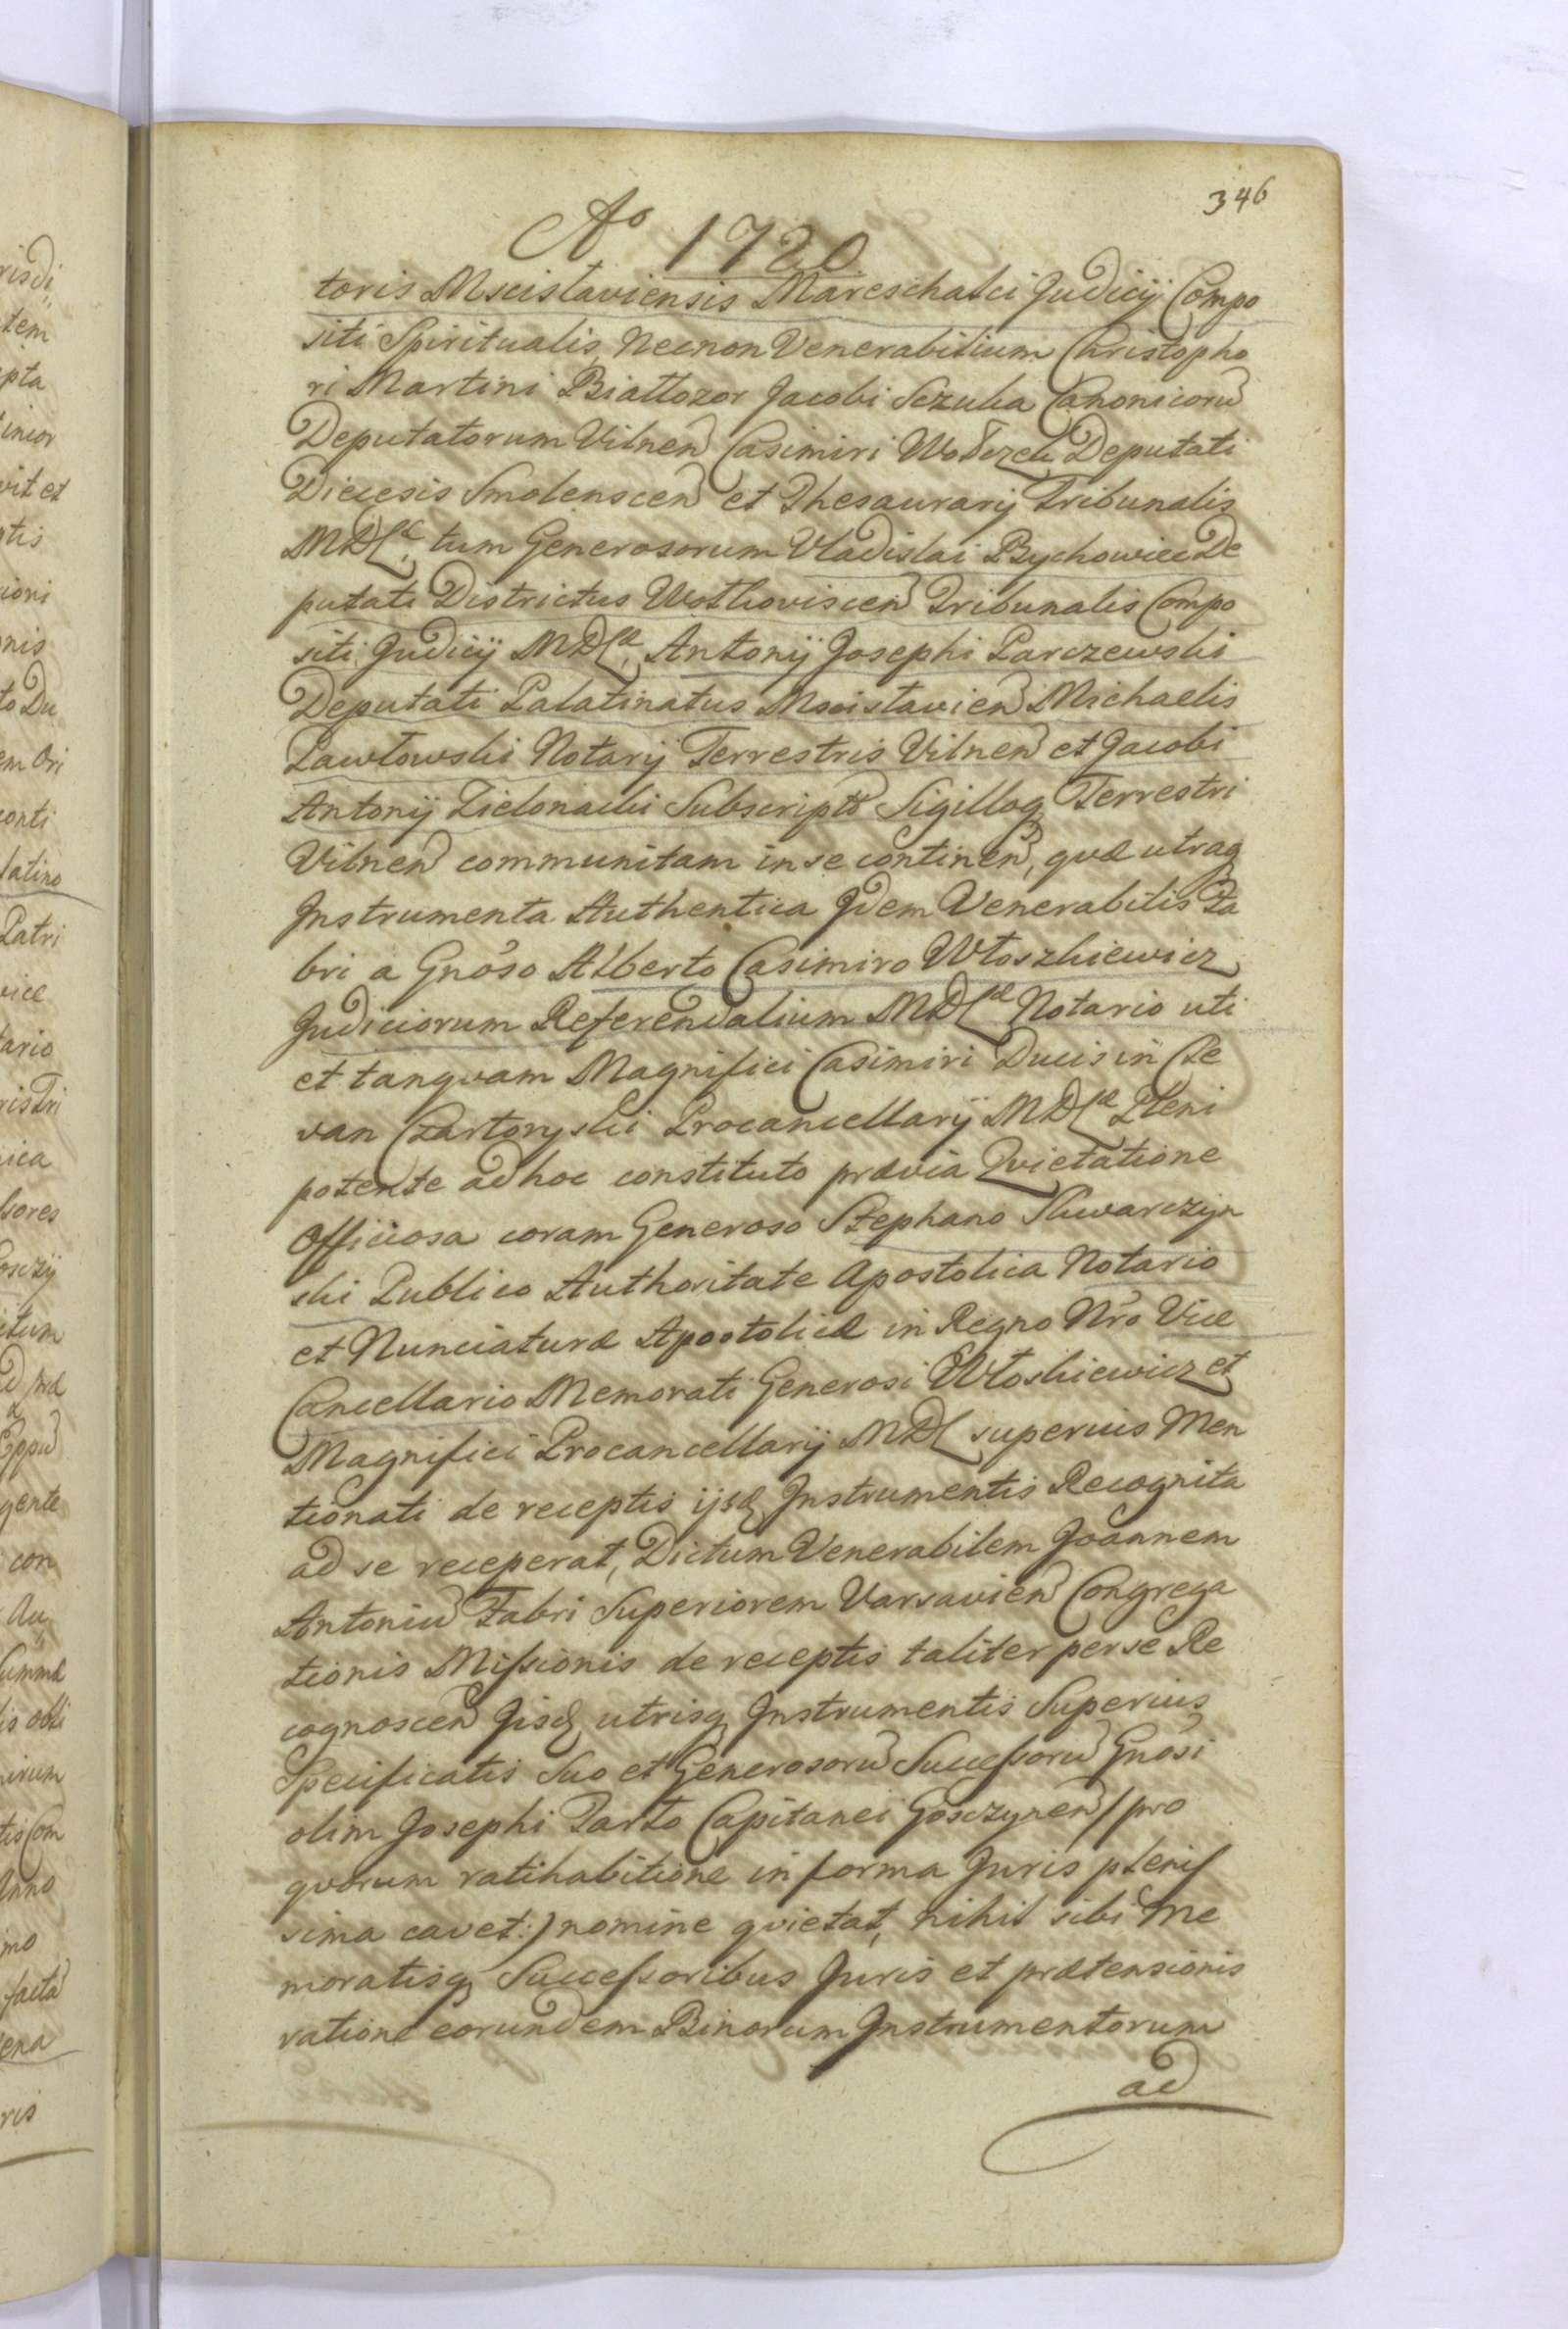 346
Aº 1720
toris Mscislaviensis Mareschalci Judicij Compo
siti Spiritualis, Necnon Venerabilium Christopho
ri Martini Białłozor Jacobi Szzuka Canonicorū
Deputatorum Vilnen Casimiri Deputati
Diecesis Smolenscen et Thesaurarij Tribunalis
MDLæ, tum Generosorum Vladislai Bychowiec De
putati Districtus Wołkoviscen Tribunalis Compo
siti Judicij MDLæ, Antonij Josephi Parczewski
Deputati Palatinatus Mscislavien Michaelis
Pawłowski Notarij Terrestris Vilnen et Jacobi
Antonij Zielonacki Subscriptō Sigilloq Terrestri
Vilnen communitam in se continen, quæ utraq
Instrumenta Authentica Idem Venerabilis Fa
bri a Gnōso Alberto Casimiro Włoszkiewicz
Judiciorum Referendalium MDLæ Notario uti
et tanqvam Magnifici Casimiri Ducis in Cle
van Czartoryski Procancellarij MDLæ Pleni
potente ad hoc constituto prævia Qvietatione
Officiosa coram Generoso Stephano Skwarczyn
ski Publico Authoritate Apostolica Notario
et Nunciaturæ Apostolicæ in Regno Nrō Vice
Cancellario Memorati Generosi Włoskiewicz et
Magnifici Procancellarij MDL superius Men
tionati de receptis ijsd Instrumentis Recognita
ad se receperat, Dictum Venerabilem Joannem
Antoniū Fabri Superiorem Varsavien Congrega
tionis Missionis de receptis taliter per se Re
cognoscen Iisd utrisq Instrumentis Superius
Specificatis Suo et Generosorū Successorū Gnōsi
olim Josephi Tarło Capitanei Gosczynen /pro
qvorum ratihabitione in forma Juris plenis
sima cavet:) nomine qvietat, nihil sibi Me
moratisq Successoribus Juris et prætensionis
ratione eorundem Binorum Instrumentorum
ad